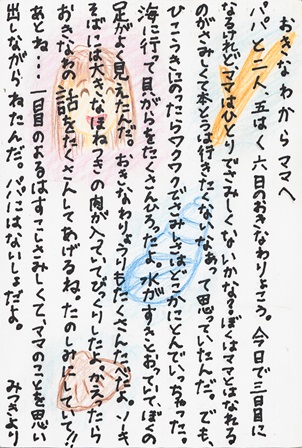 おきなわからママへ
パパと二人、五はく六日のおきなわりょこう。今日で三日目に
なるけれど、ママはひとりでさみしくないかな？ぼくはママとはなれる
のがさみしくて本とうは行きたくないなぁって思っていたんだ。でも
ひこうきにのったらワクワクでさみしさはどこかにとんでいっちゃった。
海に行って貝がらをたくさんひろったよ。水がすきとおっていて、ぼくの
足がよく見えたんだ。おきなわりょうりもたくさんたべたよ。ソーキ
そばには大きなほねつきの肉が入っていてびっくりした！かえったら
おきなわの話をたくさんしてあげるね。たのしみにしてて!!
あとね…一日目のよるはすこしさみしくて、ママのことを思い
出しながらねたんだ。パパにはないしょだよ。 みつきより